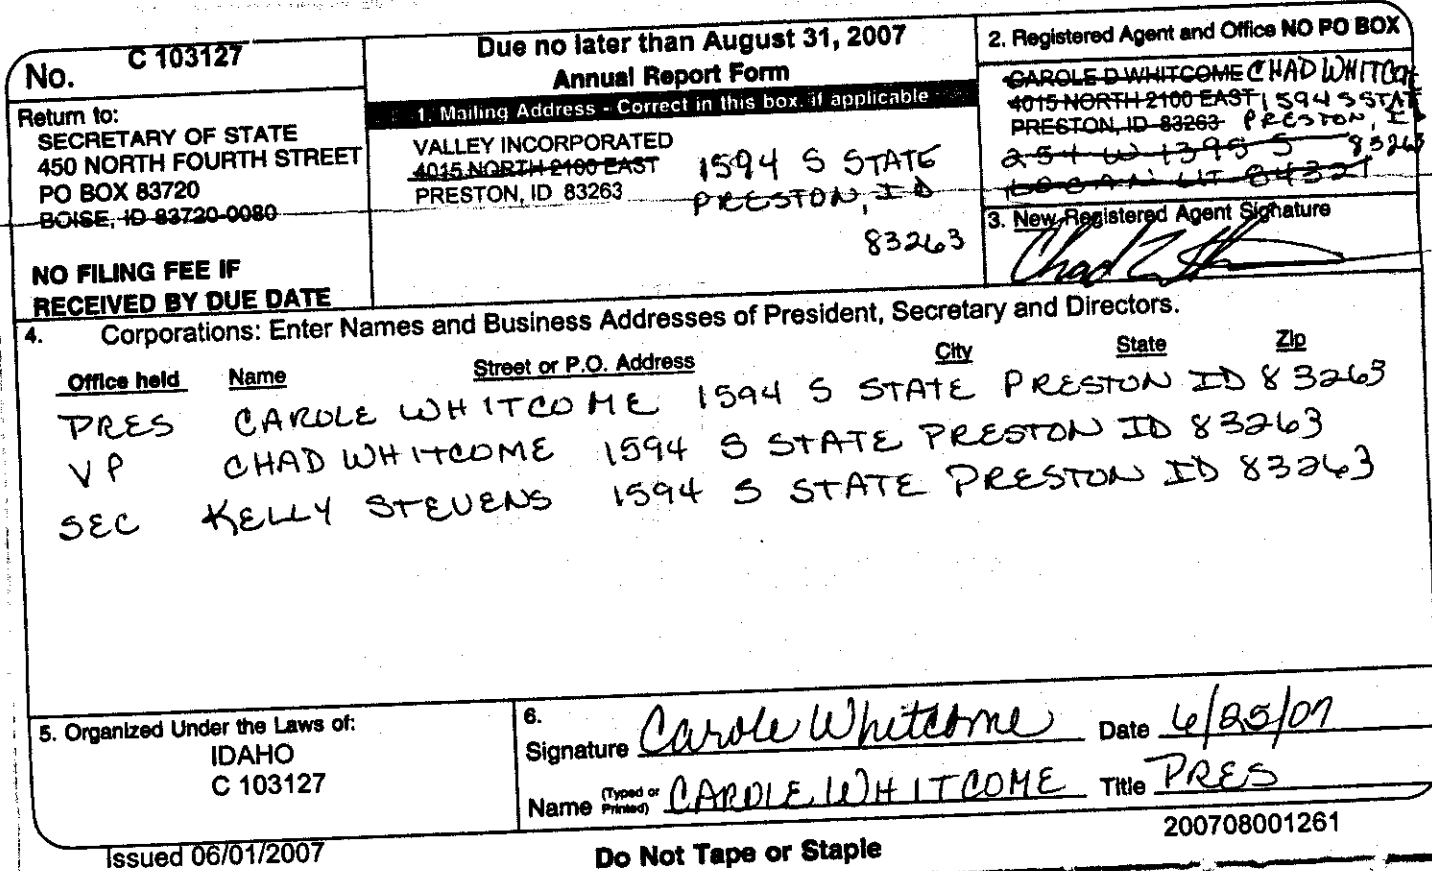 No. C 103127
Return to:
SECRETARY OF STATE
450 NORTH FOURTH STREET
PO BOX 83720
BOISE, ID 83720-0080
NO FILING FEE IF
RECEIVED BY DUE DATE
Due no later than August 31, 2007
Annual Report Form
1. Mailing Address - Correct in this box, if applicable
VALLEY INCORPORATED
4015 NORTH 2100 EAST 1594 S STATE
PRESTON, ID 83263 PRESTON, ID
83263
2. Registered Agent and Office NO PO BOX
CAROLE D WHITCOME CHAD WHITCOM
4015 NORTH 2100 EAST 1594 S STAT
PRESTON, ID 83263 PRESTON, I
254 W 1395 S 83263
LOGAN UT 84321
3. New Registered Agent Signature
4. Corporations: Enter Names and Business Addresses of President, Secretary and Directors.
Office held Name Street or P.O. Address City State Zip
PRES CAROLE WHITCOME 1594 S STATE PRESTON ID 83263
VP CHAD WHITCOME 1594 S STATE PRESTON ID 83263
SEC KELLY STEVENS 1594 S STATE PRESTON ID 83263
5. Organized Under the Laws of:
IDAHO
C 103127
6.
Signature Carole Whitcome Date 6/25/07
Name (Typed or Printed) CAROLE WHITCOME Title PRES
200708001261
Issued 06/01/2007
Do Not Tape or Staple